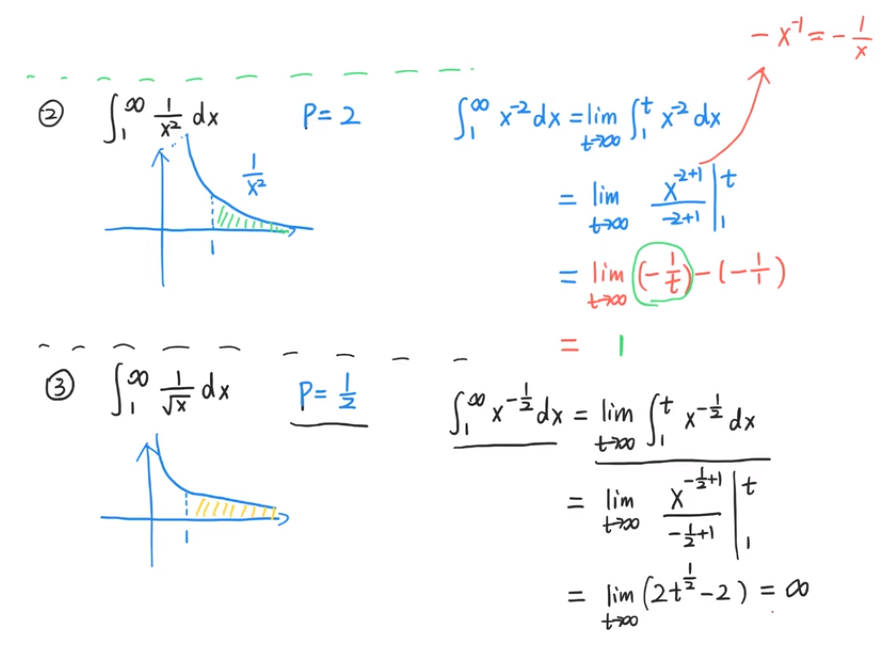 − x⁻¹ = − 1/x
② ∫₁^∞ 1/x² dx P = 2 ∫₁^∞ x⁻² dx = lim_{t→∞} ∫₁^t x⁻² dx
1/x²
= lim_{t→∞} x^{-2+1}/(-2+1) |₁^t
1
= lim_{t→∞} (− 1/t) − (− 1/1)
= 1
③ ∫₁^∞ 1/√x dx P = 1/2 ∫₁^∞ x^{-1/2} dx = lim_{t→∞} ∫₁^t x^{-1/2} dx
= lim_{t→∞} x^{-1/2+1}/(-1/2+1) |₁^t
1
= lim_{t→∞} (2t^{1/2} − 2) = ∞